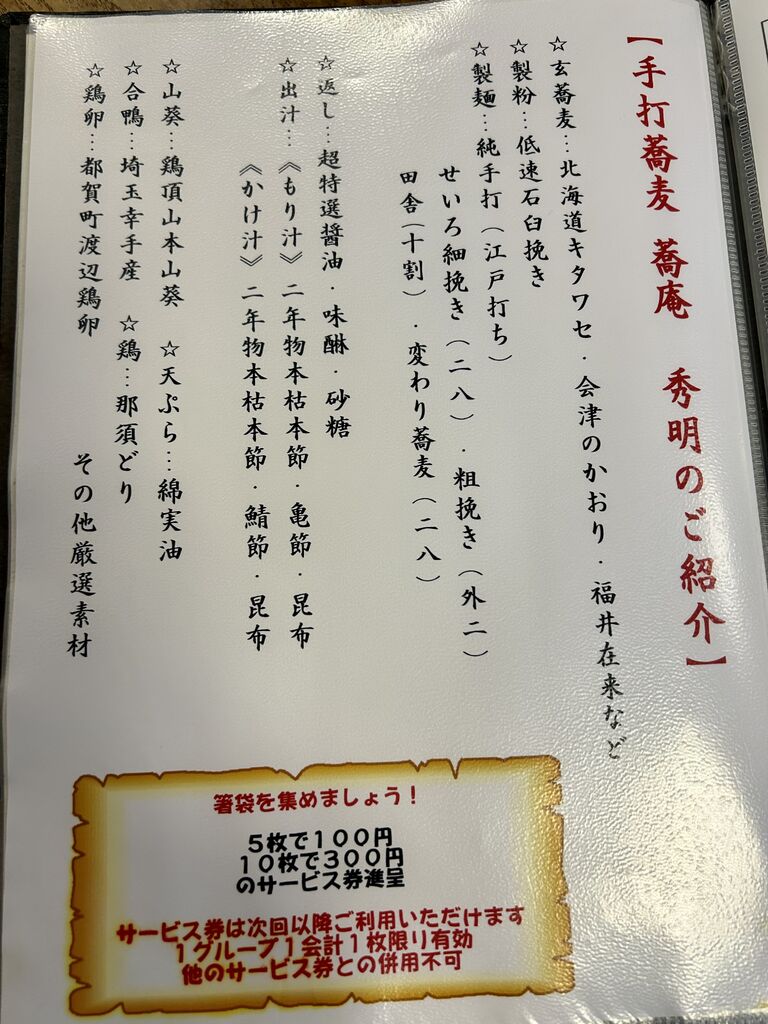 【手打蕎麦 蕎庵 秀明のご紹介】
☆玄蕎麦…北海道キタワセ・会津のかおり・福井在来など
☆製粉…低速石臼挽き
☆製麺…純手打（江戸打ち）
せいろ細挽き（二八）・粗挽き（外二）
田舎（十割）・変わり蕎麦（二八）
☆返し…超特選醤油・味醂・砂糖
☆出汁…《もり汁》二年物本枯本節・亀節・昆布
《かけ汁》二年物本枯本節・鯖節・昆布
☆山葵…鶏頂山本山葵 ☆天ぷら…綿実油
☆合鴨…埼玉幸手産 ☆鶏…那須どり
☆鶏卵…都賀町渡辺鶏卵 その他厳選素材
箸袋を集めましょう！
５枚で１００円
１０枚で３００円
のサービス券進呈
サービス券は次回以降ご利用いただけます
１グループ１会計１枚限り有効
他のサービス券との併用不可